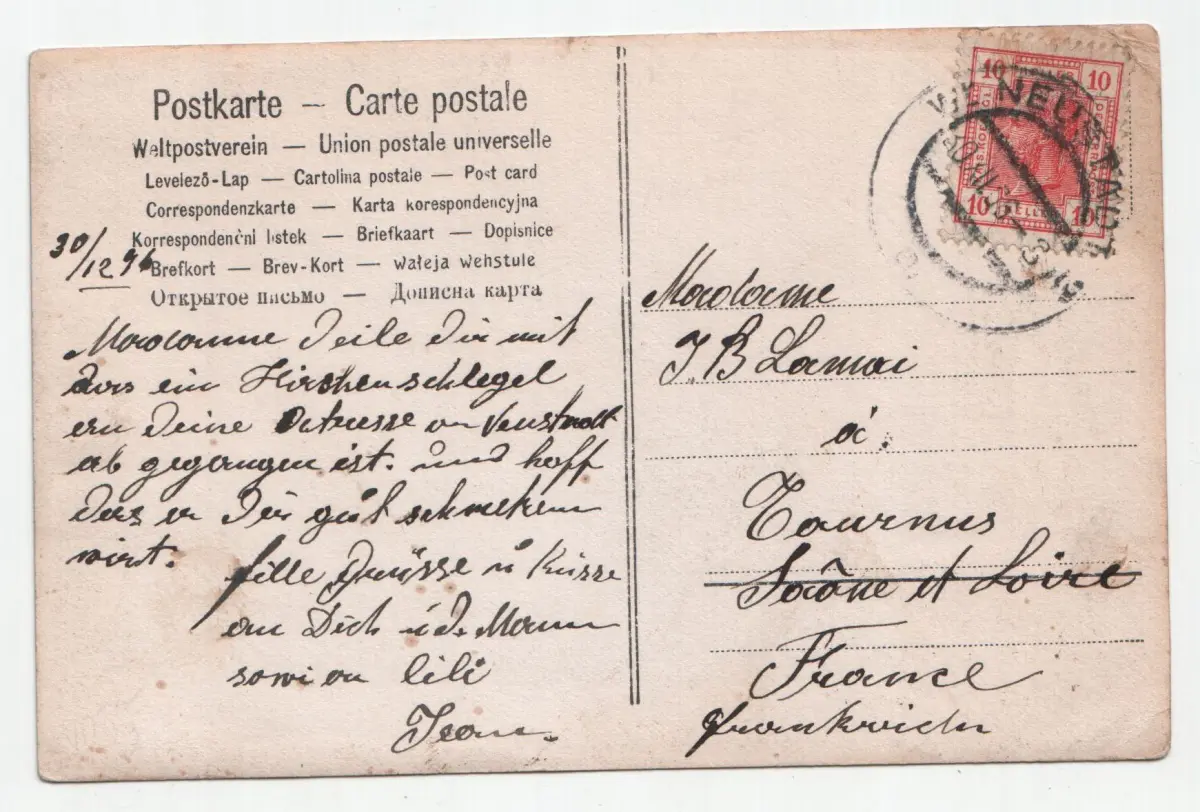 Postkarte — Carte postale
Weltpostverein — Union postale universelle
Levelező-Lap — Cartolina postale — Post card
Correspondenzkarte — Karta korespondencyjna
Korrespondenčni listek — Briefkaart — Dopisnice
Brefkort — Brev-Kort — Wałeja Wehstule
Открытое письмо — Дописна карта
30/12
Madamme Teile Dir mit
das ein Hirschenschlegel
an Deine Adresse
ab gegangen ist. und hoff
das er Dir gut
wirt.
fille Grüsse u Küsse
an Dich u d. Mann
sowi an lili
Jean.
10 10
10 10
WR. NEUSTADT
Madame
J B Lamai
à
Tournus
Saône et Loire
France
frankreich